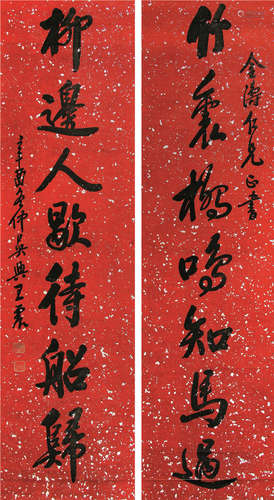 金濤仁兄正書
竹裏橋鳴知馬過
柳邊人歇待船歸
辛酉仲吳興王震